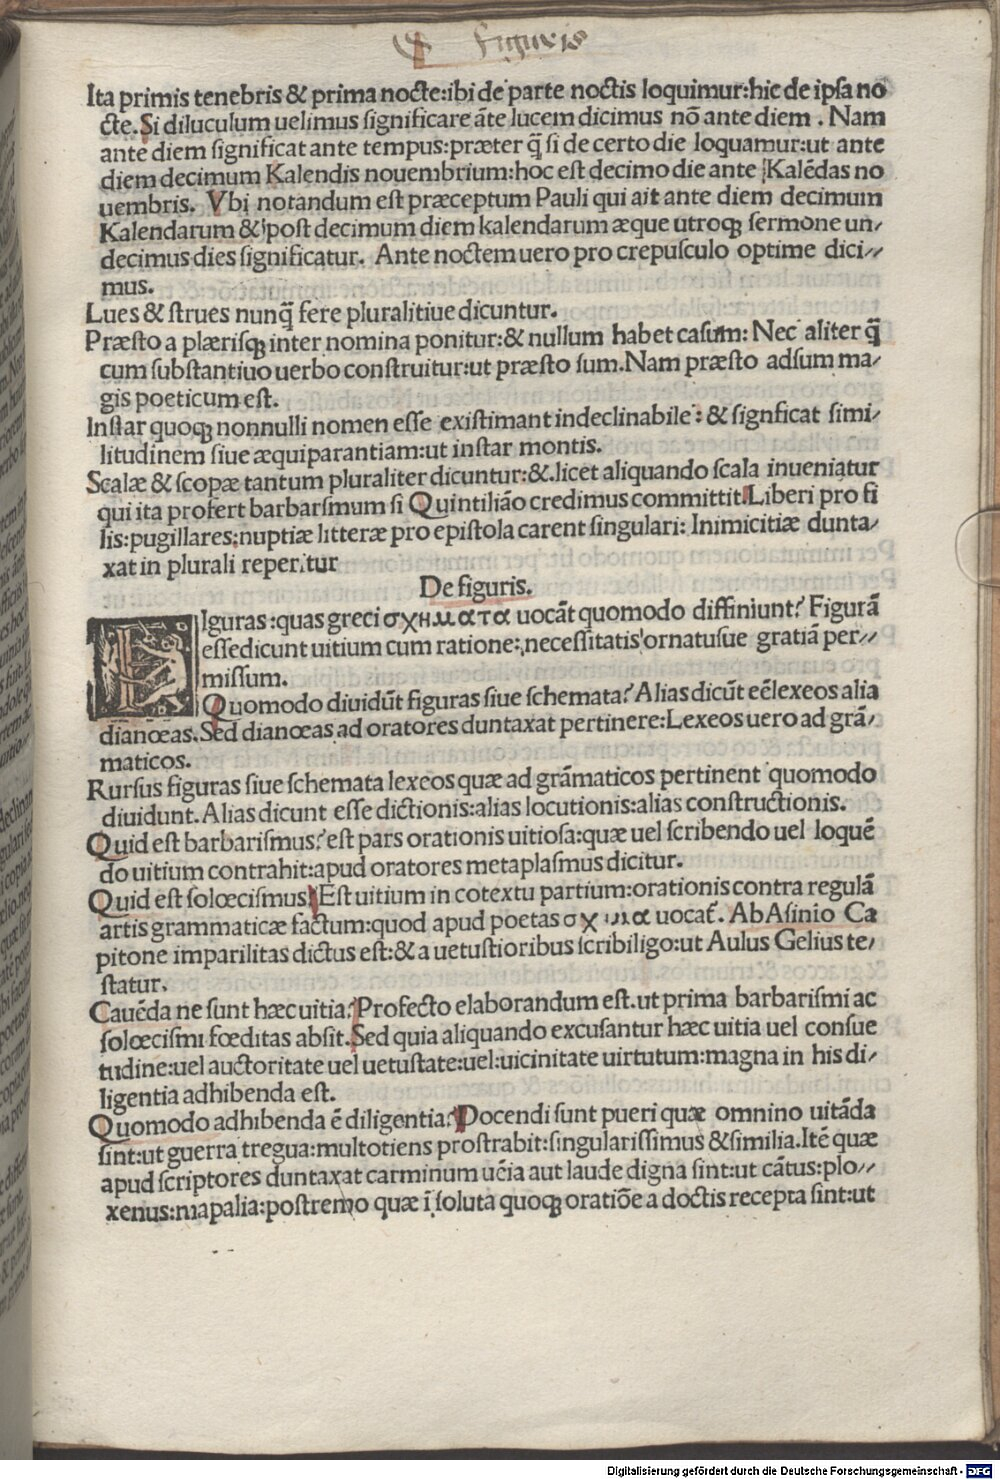 figuris
Ita primis tenebris & prima nocte:ibi de parte noctis loquimur:hic de ipſa no
cte. Si diluculum uelimus ſignificare ãte lucem dicimus nõ ante diem . Nam
ante diem ſignificat ante tempus:præter q̃ ſi de certo die loquamur:ut ante
diem decimum Kalendis nouembrium:hoc eſt decimo die ante Kalẽdas no
uembris. Vbi notandum eſt præceptum Pauli qui ait ante diem decimum
Kalendarum & poſt decimum diem kalendarum æque utroqꝫ ſermone un⸗
decimus dies ſignificatur. Ante noctem uero pro crepuſculo optime dici⸗
mus.
Lues & ſtrues nunq̃ fere pluralitiue dicuntur.
Præſto a plæriſqꝫ inter nomina ponitur:& nullum habet caſum: Nec aliter q̃
cum ſubſtantiuo uerbo conſtruitur:ut præſto ſum.Nam præſto adſum ma⸗
gis poeticum eſt.
Inſtar quoqꝫ nonnulli nomen eſſe exiſtimant indeclinabile : & ſignficat ſimi⸗
litudinem ſiue æquiparantiam:ut inſtar montis.
Scalæ & ſcopæ tantum pluraliter dicuntur:& licet aliquando ſcala inueniatur
qui ita profert barbariſmum ſi Quintilião credimus committit.Liberi pro fi
lis:pugillares:nuptiæ litteræ pro epiſtola carent ſingulari: Inimicitiæ dunta⸗
xat in plurali reperitur
De figuris.
FIguras :quas greci σχηματα uocãt quomodo diffiniunt? Figurã
eſſe dicunt uitium cum ratione: neceſſitatis ornatuſue gratiã per⸗
miſſum.
Quomodo diuidũt figuras ſiue ſchemata? Alias dicũt eẽ lexeos alia
dianœas. Sed dianœas ad oratores duntaxat pertinere:Lexeos uero ad grã⸗
maticos.
Rurſus figuras ſiue ſchemata lexeos quæ ad grãmaticos pertinent quomodo
diuidunt. Alias dicunt eſſe dictionis:alias locutionis:alias conſtructionis.
Quid eſt barbariſmus? eſt pars orationis uitioſa:quæ uel ſcribendo uel loquẽ
do uitium contrahit:apud oratores metaplaſmus dicitur.
Quid eſt ſolœciſmus? Eſt uitium in cotextu partium:orationis contra regulã
artis grammaticæ factum:quod apud poetas σχημα uocat̃. Ab Aſinio Ca
pitone imparilitas dictus eſt:& a uetuſtioribus ſcribiligo:ut Aulus Gelius te⸗
ſtatur.
Cauẽda ne ſunt hæc uitia? Profecto elaborandum eſt.ut prima barbariſmi ac
ſolœciſmi fœditas abſit. Sed quia aliquando excuſantur hæc uitia uel conſue
tudine:uel auctoritate uel uetuſtate:uel:uicinitate uirtutum:magna in his di⸗
ligentia adhibenda eſt.
Quomodo adhibenda ẽ diligentia? Docendi ſunt pueri quæ omnino uitãda
ſint:ut guerra tregua:multotiens proſtrabit:ſingulariſſimus & ſimilia.Itẽ quæ
apud ſcriptores duntaxat carminum uẽia aut laude digna ſint:ut cãtus:plo⸗
xenus:mapalia:poſtremo quæ ĩ ſoluta quoqꝫ oratiõe a doctis recepta ſint:ut
Digitalisierung gefördert durch die Deutsche Forschungsgemeinschaft - DFG